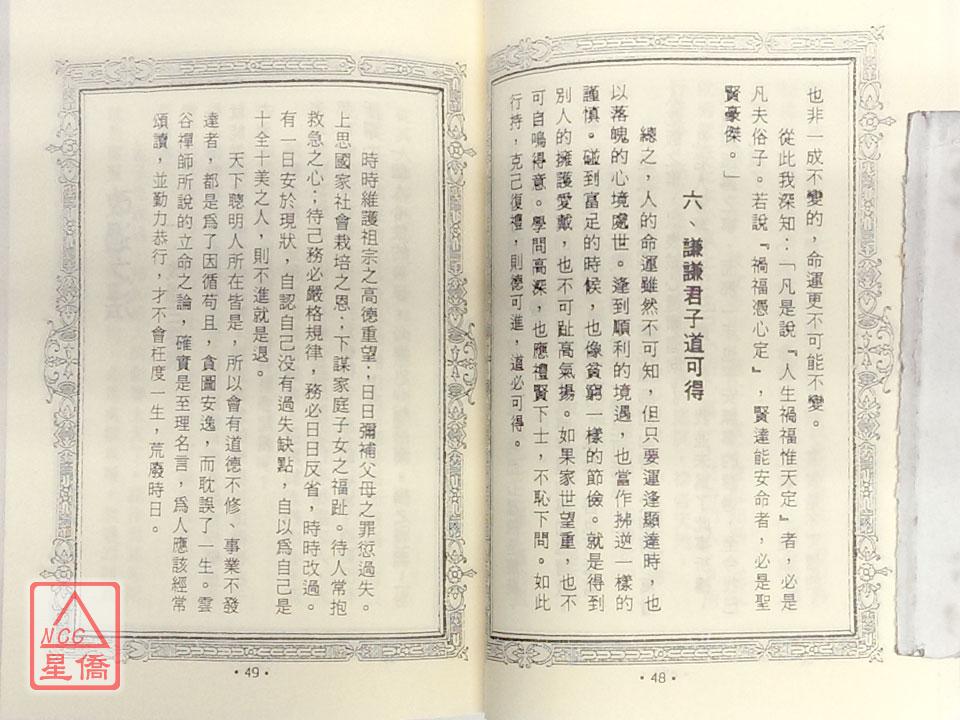 也非一成不變的，命運更不可能不變。
從此我深知：「凡是說『人生禍福惟天定』者，必是
凡夫俗子。若說『禍福憑心定』，賢達能安命者，必是聖
賢豪傑。」
六、謙謙君子道可得
總之，人的命運雖然不可知，但只要運逢顯達時，也
以落魄的心境處世。逢到順利的境遇，也當作拂逆一樣的
謹慎。碰到富足的時候，也像貧窮一樣的節儉。就是得到
別人的擁護愛戴，也不可趾高氣揚。如果家世望重，也不
可自鳴得意。學問高深，也應禮賢下士，不恥下問。如此
行持，克己復禮，則德可進，道必可得。
·48·
時時維護祖宗之高德重望；日日彌補父母之罪愆過失。
上思國家社會栽培之恩；下謀家庭子女之福趾。待人常抱
救急之心；待己務必嚴格規律，務必日日反省，時時改過。
有一日安於現狀，自認自己沒有過失缺點，自以為自己是
十全十美之人，則不進就是退。
天下聰明人所在皆是，所以會有道德不修、事業不發
達者，都是為了因循苟且，貪圖安逸，而耽誤了一生。雲
谷禪師所說的立命之論，確實是至理名言，為人應該經常
頌讀，並勤力恭行，才不會枉度一生，荒廢時日。
·49·
NCC
星僑